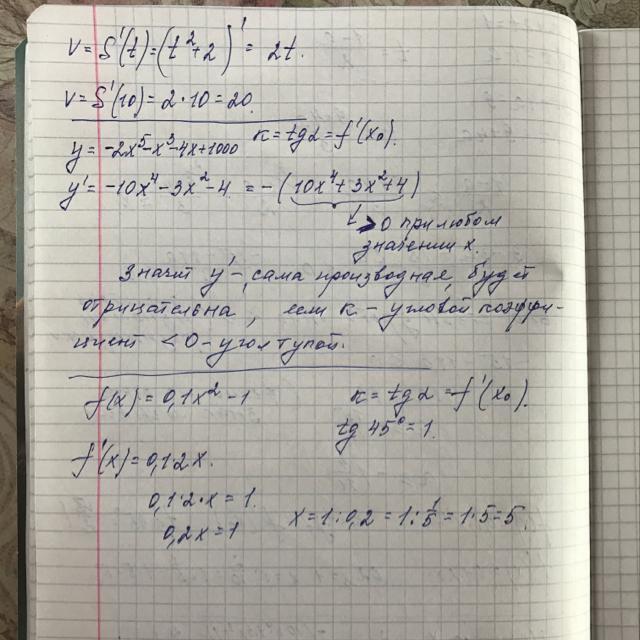 v = S'(t) = (t²+2)' = 2t.
v = S'(10) = 2·10 = 20.
y = -2x⁵-x³-4x+1000 k = tg α = f'(x₀).
y' = -10x⁴-3x²-4 = -(10x⁴+3x²+4)
>0 при любом
значении x.
Значит y' - сама производная, будет
отрицательна, если k - угловой коэффи-
циент <0 - угол тупой.
f(x) = 0,1x²-1 k = tg α = f'(x₀).
tg 45° = 1.
f'(x) = 0,1·2x.
0,1·2·x = 1.
0,2x = 1 x = 1:0,2 = 1:1/5 = 1·5 = 5.